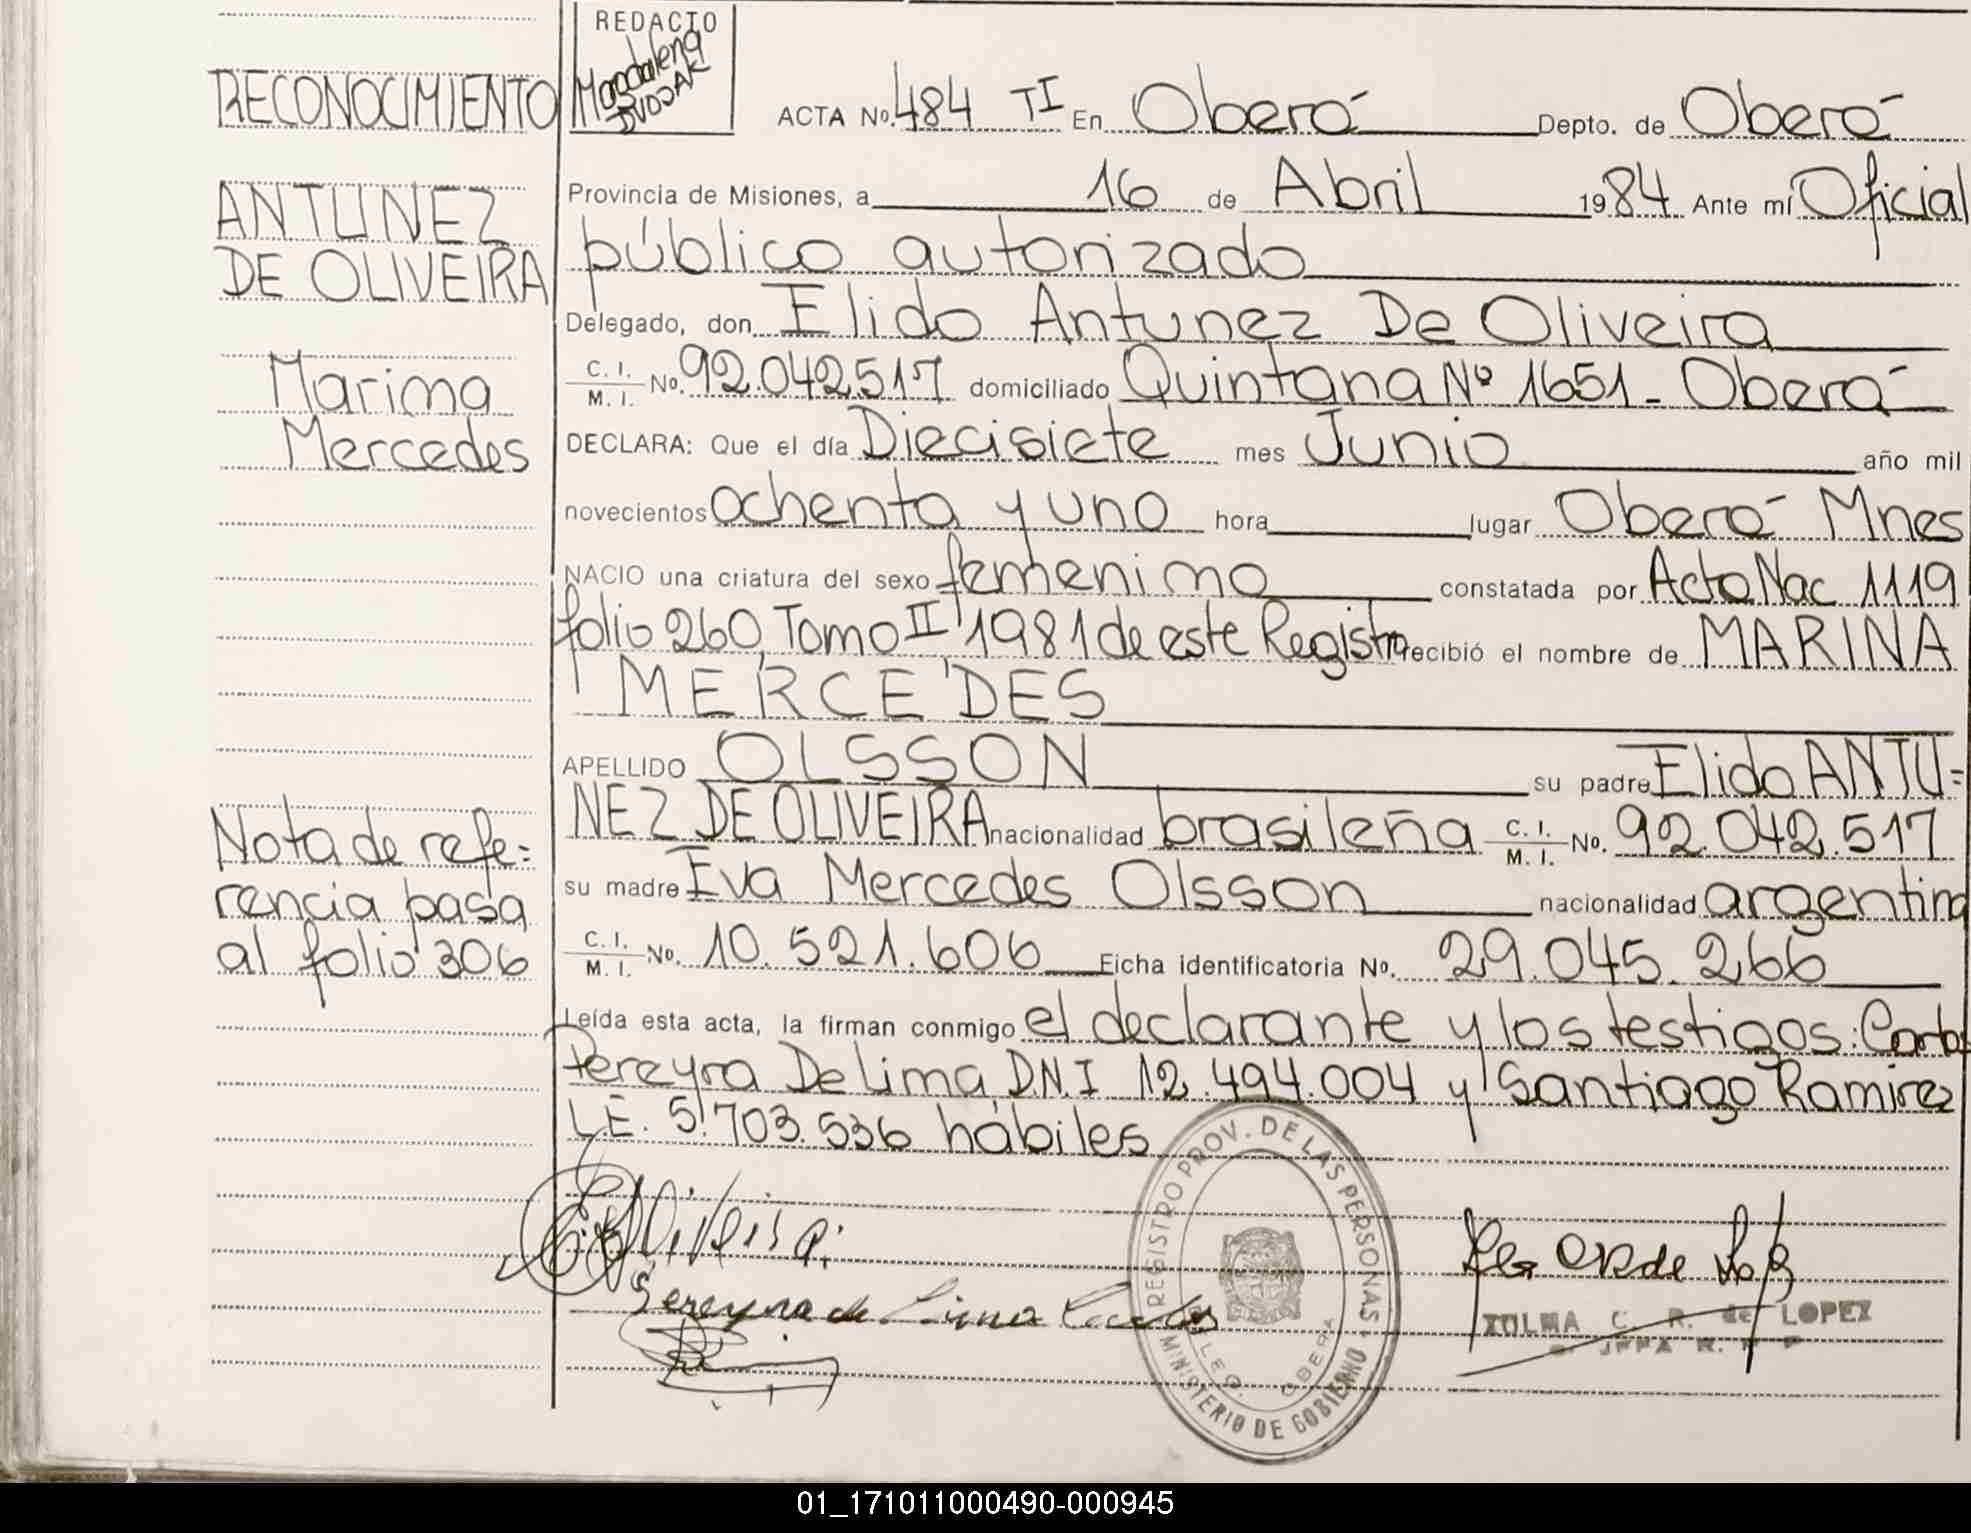 REDACTO
Magdalena
DUDJAK
RECONOCIMIENTO
ACTA No. 484 TI En Oberá Depto. de Oberá
Provincia de Misiones, a 16 de Abril 1984 Ante mí Oficial
ANTUNEZ
público autorizado
DE OLIVEIRA
Delegado, don Elido Antunez De Oliveira
Marina
C. I. / M. I. No. 92.042.517 domiciliado Quintana Nº 1651 - Oberá
Mercedes
DECLARA: Que el día Diecisiete mes Junio año mil
novecientos ochenta y uno hora lugar Oberá Mnes
NACIO una criatura del sexo femenino constatada por Acta Nac 1119
folio 260, Tomo II 1981 de este Registro recibió el nombre de MARINA
MERCEDES
APELLIDO OLSSON su padre Elido ANTU=
NEZ DE OLIVEIRA nacionalidad brasileña C. I. / M. I. No. 92.042.517
Nota de refe=
su madre Eva Mercedes Olsson nacionalidad argentina
rencia pasa
C. I. / M. I. No. 10.521.606 Ficha identificatoria No. 29.045.266
al folio 306
Leída esta acta, la firman conmigo el declarante y los testigos: Carlos
Pereyra De Lima D.N.I 12.494.004 y Santiago Ramirez
L.E. 5.703.536 hábiles
Oliveira
Pereyra de Lima Carlos
REGISTRO PROV. DE LAS PERSONAS
MINISTERIO DE GOBIERNO
DELEG. OBERA
ZULMA C. R. de LOPEZ
JEFA R.
01_171011000490-000945